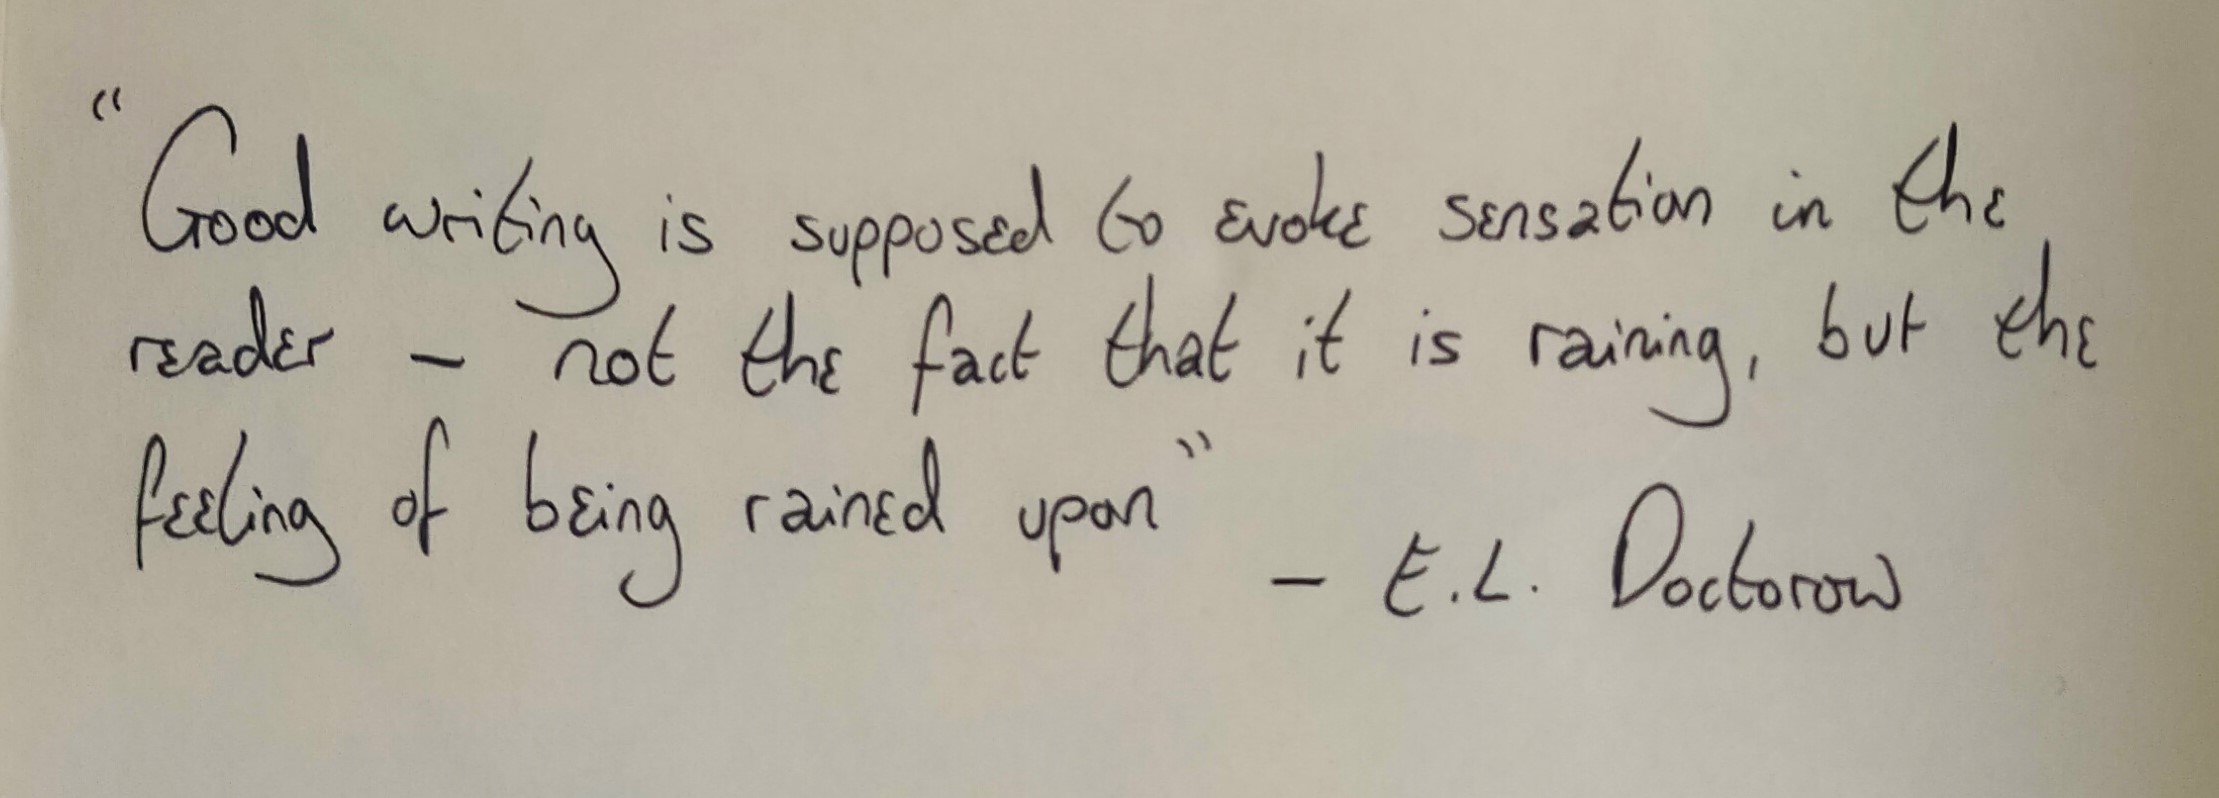 “Good writing is supposed to evoke sensation in the
reader – not the fact that it is raining, but the
feeling of being rained upon”
– E.L. Doctorow